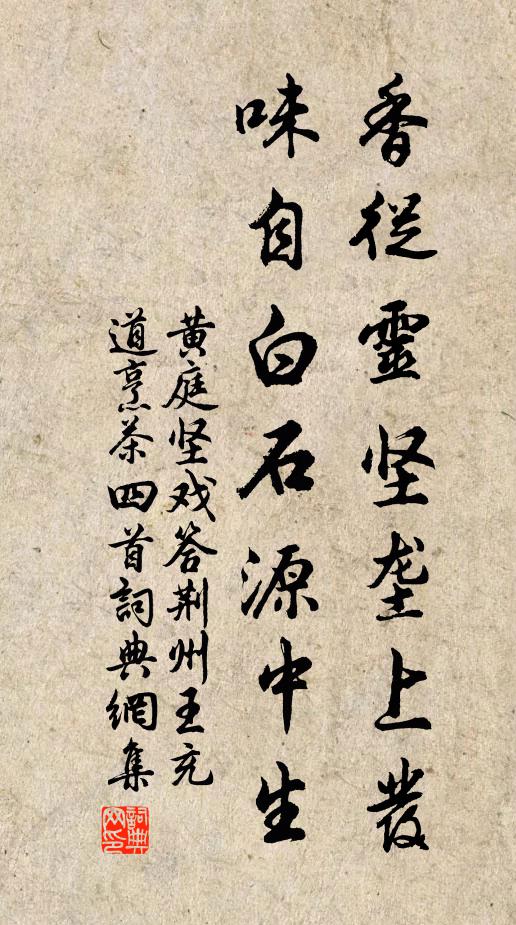 香從靈坚垄上發
味自白石源中生
黄庭坚戏答荆州王充
道烹茶四首詞典網集
詞典網印